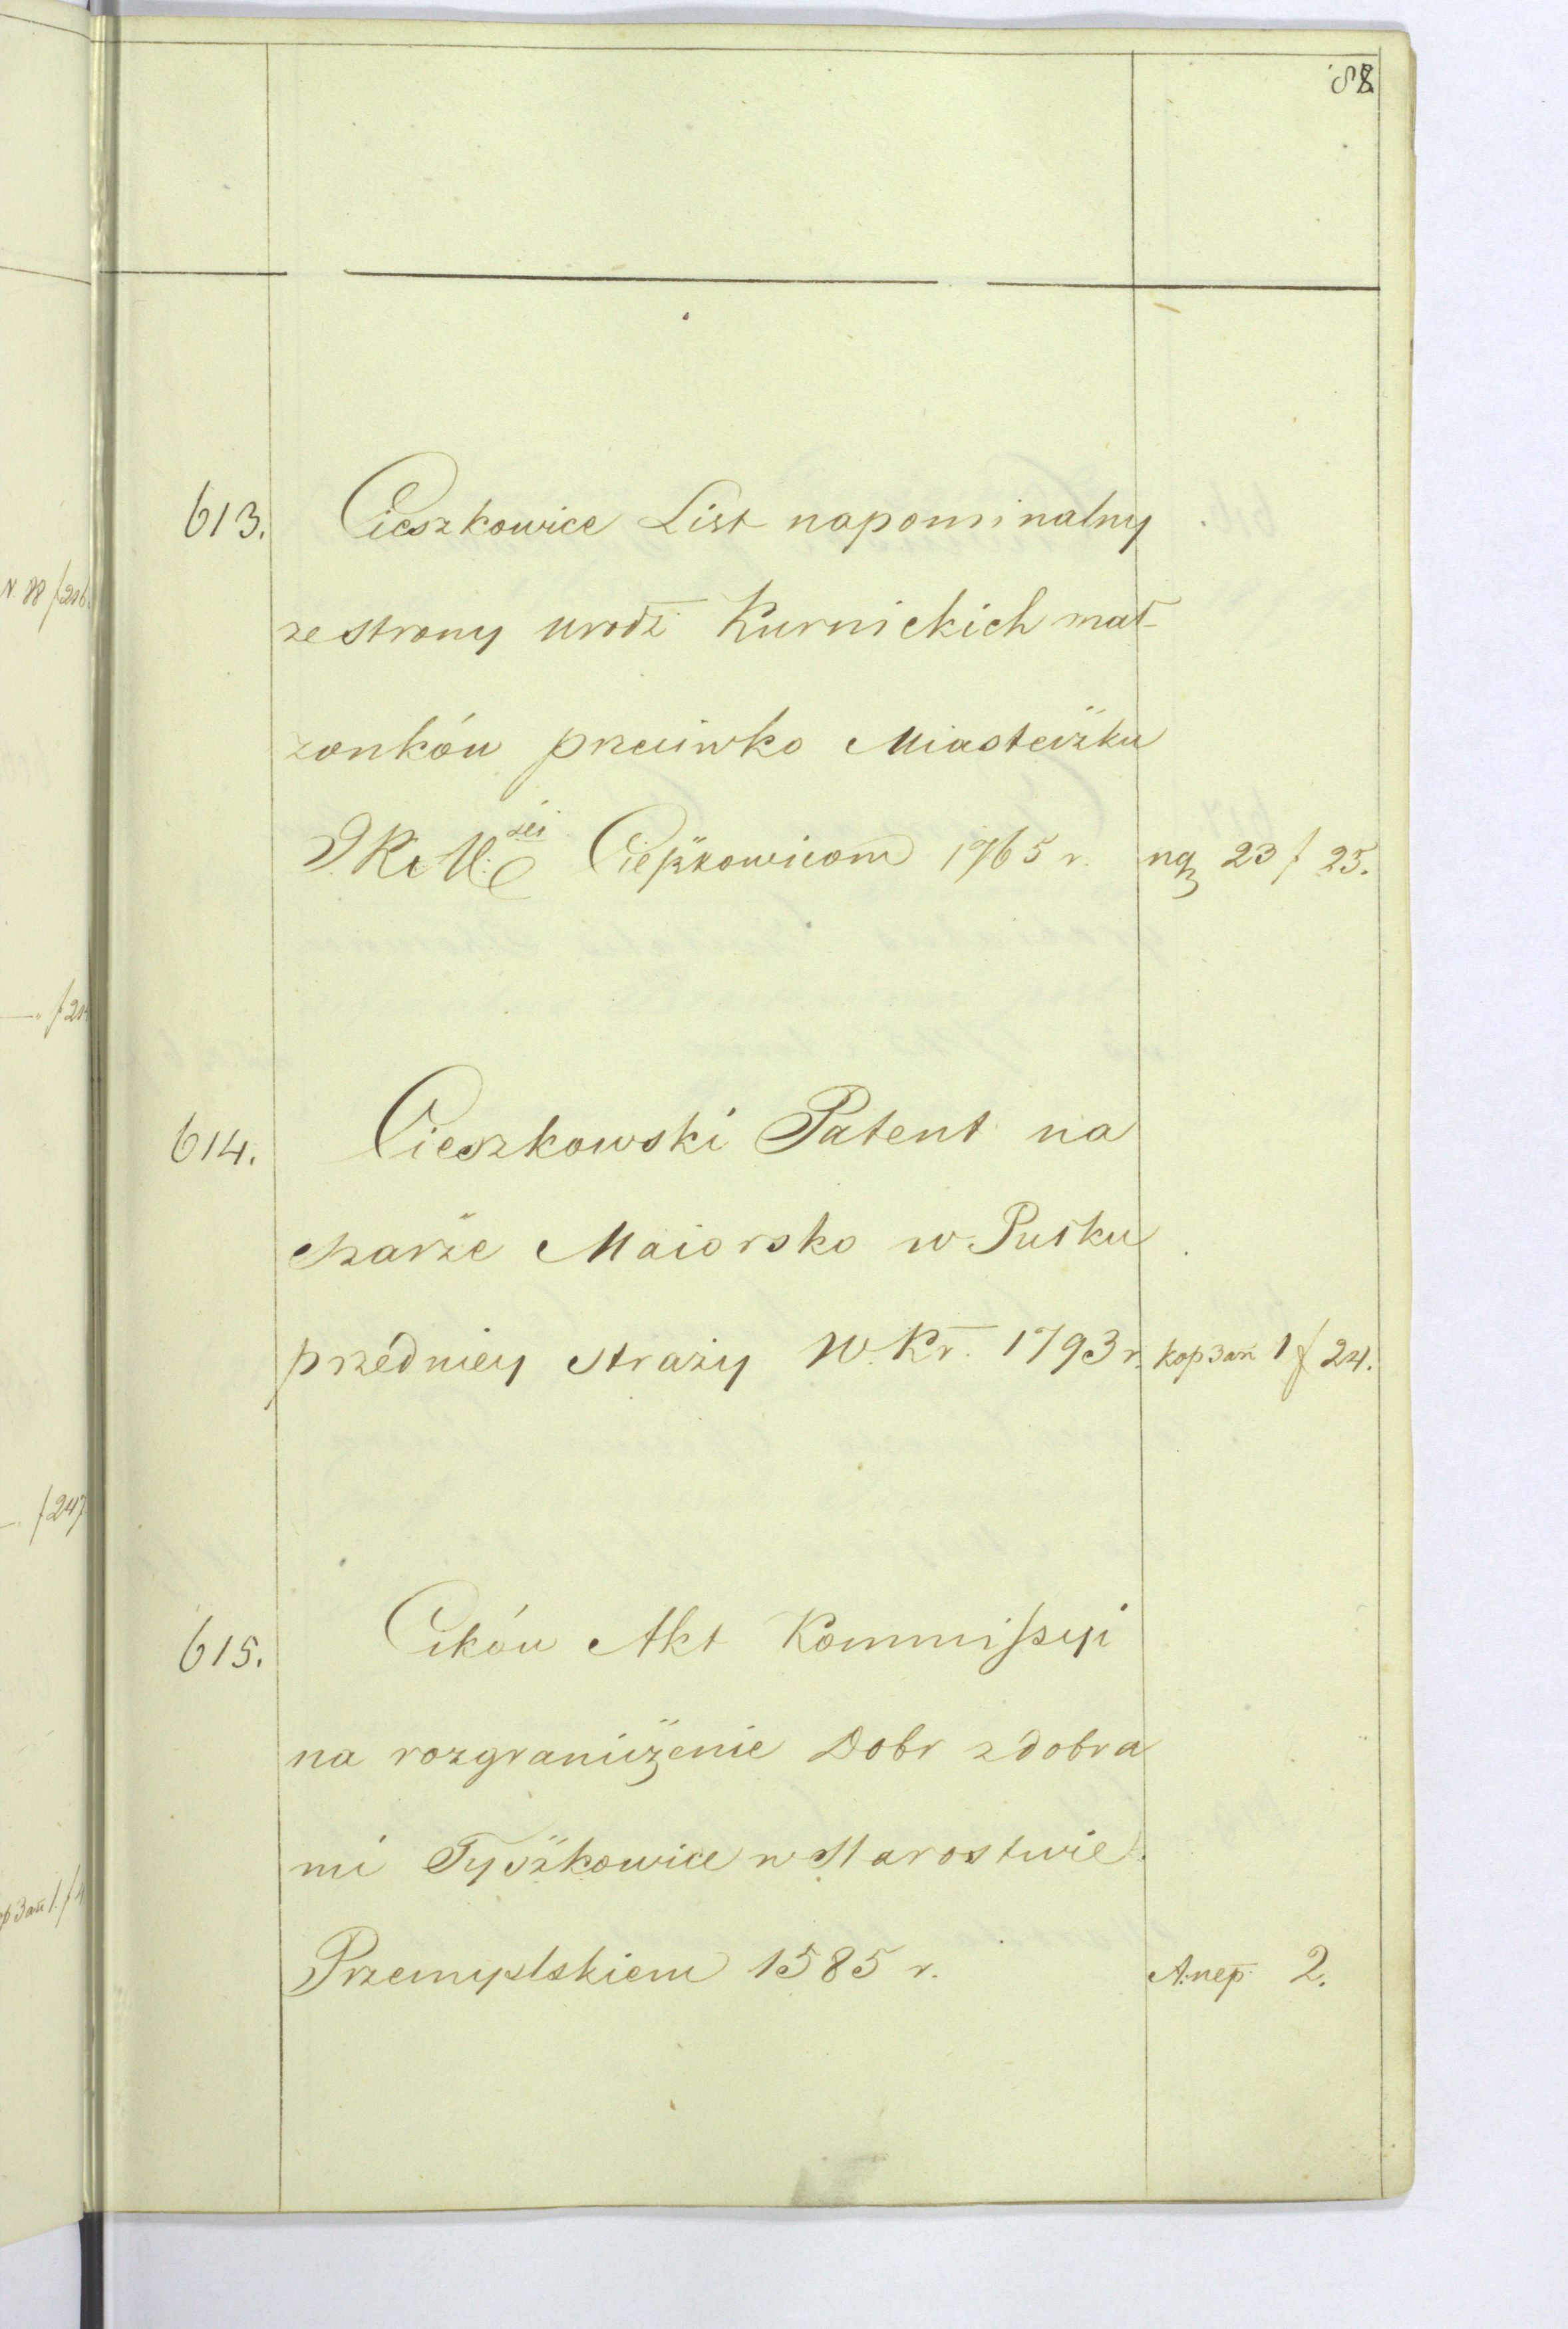 88
613. Cieszkowice List napominalny
ze strony urodz Kurnickich mał-
zonków przeciwko Miasteczku
J. K. M.ści Cieszkowicom 1765 r. 23 f 25.
614. Cieszkowski Patent na
szarże Maiorsko w Pułku
przedniey straży W. Kr. 1793 r. кор зап 1 f 24.
615. Cików Akt Kommissyi
na rozgraniczenie Dobr z dobra
mi Tyszkowice w Starostwie
Przemyslskiem 1585 r. А. пер. 2.